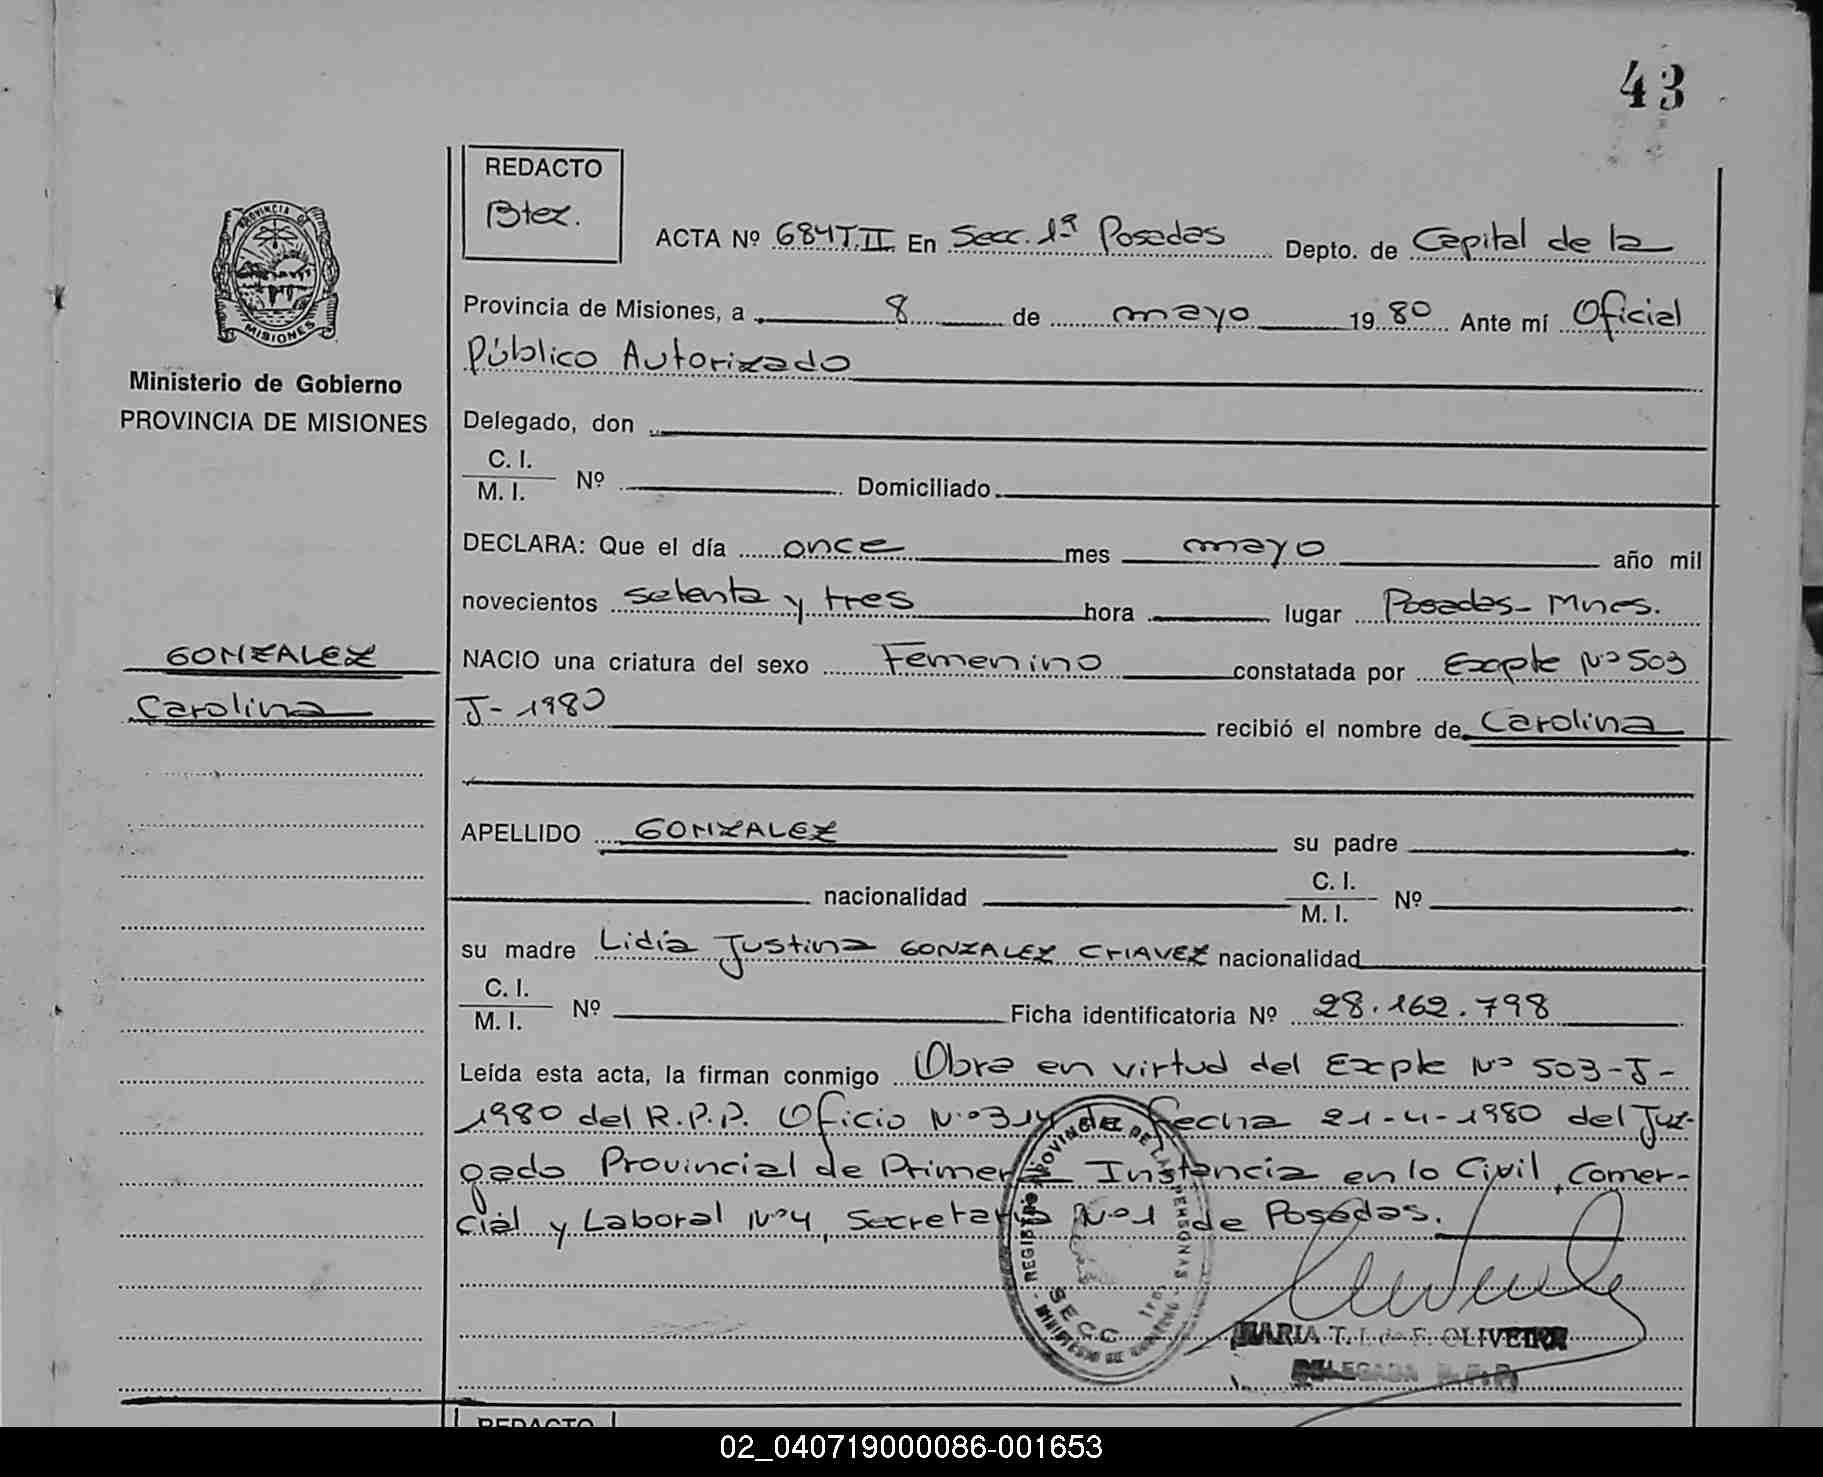 43
REDACTO
Btez.
ACTA Nº 684 T. II. En Secc. 1ª Posadas Depto. de Capital de la
PROVINCIA DE MISIONES
Provincia de Misiones, a 8 de mayo 1980 Ante mí Oficial
Público Autorizado
Ministerio de Gobierno
PROVINCIA DE MISIONES
Delegado, don
C. I.
M. I. Nº Domiciliado
DECLARA: Que el día once mes mayo año mil
novecientos setenta y tres hora lugar Posadas- Mnes.
GONZALEZ
Carolina
NACIO una criatura del sexo Femenino constatada por Expte Nº 503
J- 1980 recibió el nombre de Carolina
APELLIDO GONZALEZ su padre
nacionalidad C. I.
M. I. Nº
su madre Lidia Justina GONZALEZ CHAVEZ nacionalidad
C. I.
M. I. Nº Ficha identificatoria Nº 28.162.798
Leída esta acta, la firman conmigo Obra en virtud del Expte Nº 503-J-
1980 del R.P.P. Oficio Nº 314 de fecha 21-4-1980 del Juz-
gado Provincial de Primera Instancia en lo Civil, Comer-
cial y Laboral Nº 4, Secretaría Nº 1 de Posadas.
REGISTRO PROVINCIAL DE LAS PERSONAS
SECC. 1ra
MINISTERIO DE GOBIERNO
MARIA T. I. de F. OLIVEIRA
DELEGADA R. P. P.
REDACTO
02_040719000086-001653